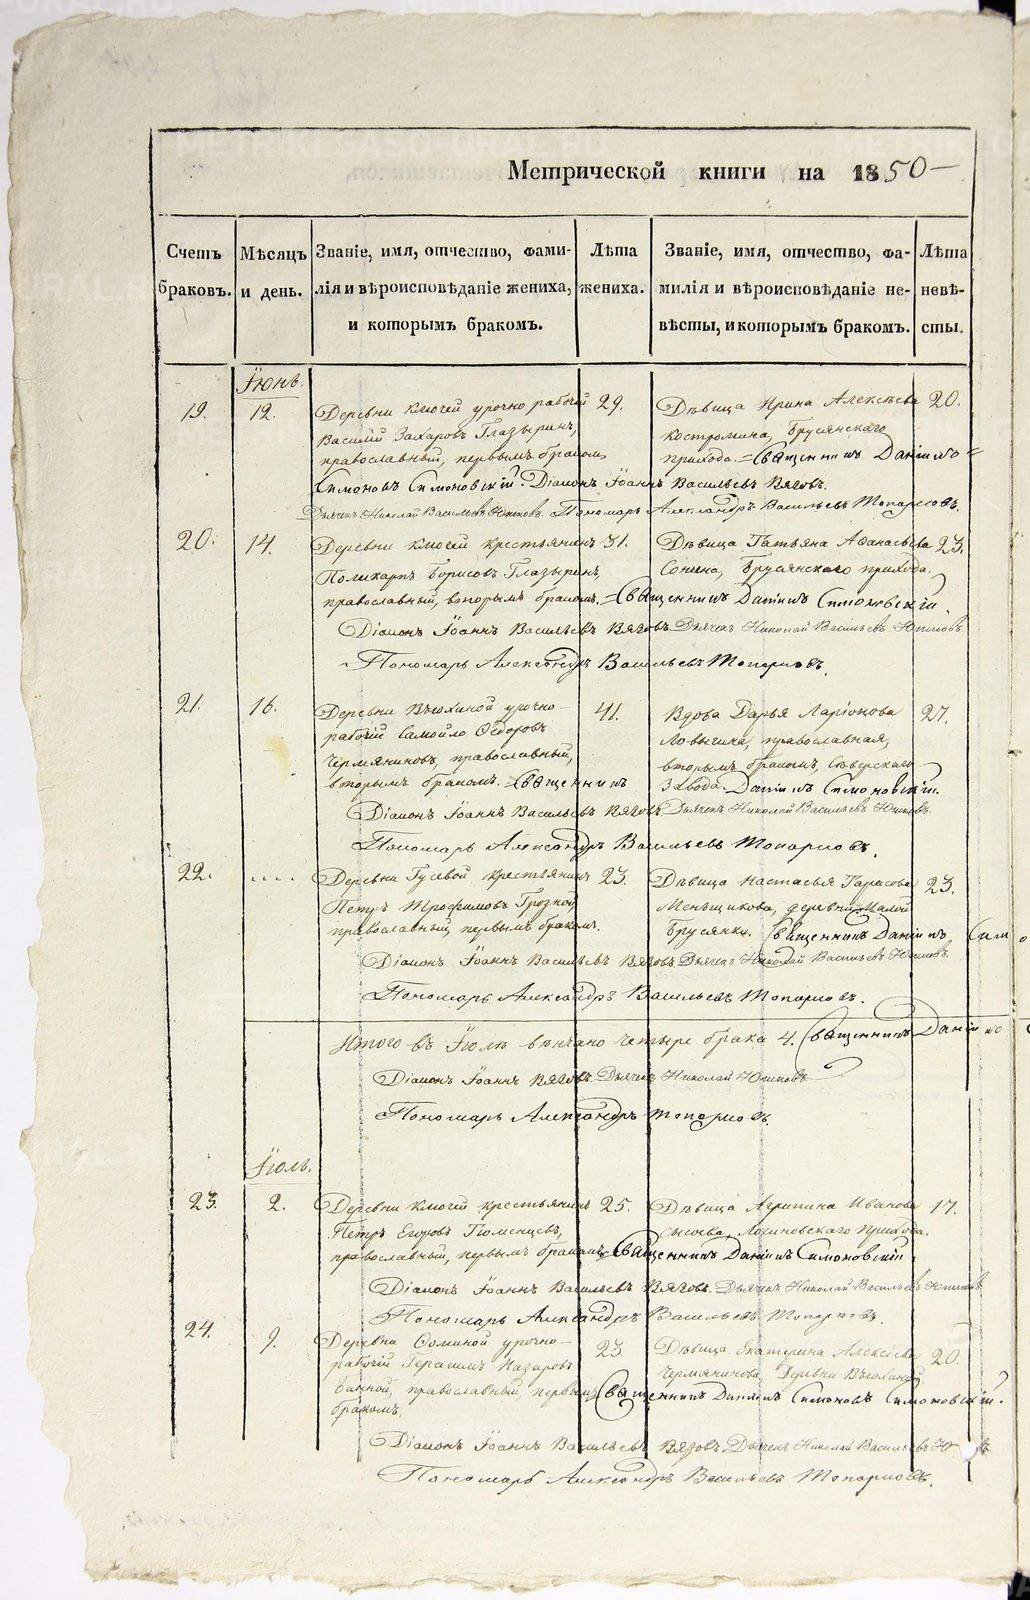 Метрической книги на 1850
Счетъ браковъ.
Мѣсяцъ и день.
Званіе, имя, отчество, фами-
лія и вѣроисповѣданіе жениха,
и которымъ бракомъ.
Лѣта
жениха.
Званіе, имя, отчество, фа-
милія и вѣроисповѣданіе не-
вѣсты, и которымъ бракомъ.
Лѣта
невѣ-
сты.
Іюнь.
19. 12. Деревни Ключей урочно рабочій 29. Дѣвица Ирина Алексѣева 20.
Василій Захаровъ Глазыринъ, Костромина, Брусянскаго
православный, первымъ бракомъ прихода. = Священникъ Даніилъ =
Симоновъ Симоновскій. Діаконъ Іоаннъ Васильевъ Вяговъ.
Дьячекъ Николай Васильевъ Юшковъ. Пономарь Александръ Васильевъ Топорковъ.
20. 14. Деревни Ключей крестьянинъ 31. Дѣвица Татьяна Аѳанасьева 23.
Поликарпъ Борисовъ Глазыринъ, Сонина, Брусянскаго прихода.
православный, вторымъ бракомъ. = Священникъ Даніилъ Симоновскій.
Діаконъ Іоаннъ Васильевъ Вяговъ Дьячекъ Николай Васильевъ Юшковъ
Пономарь Александръ Васильевъ Топорковъ.
21. 16. Деревни Вьюхиной урочно- 41. Вдова Дарья Ларіонова 27.
рабочій Самойло Ѳедоровъ Ловыгина, православная,
Чермяниновъ, православный, вторымъ бракомъ, Сѣверскаго
вторымъ бракомъ. = Священникъ Завода. Даніилъ Симоновскій.
Діаконъ Іоаннъ Васильевъ Вяговъ Дьячекъ Николай Васильевъ Юшковъ.
Пономарь Александръ Васильевъ Топорковъ.
22. .... Деревни Гусевой крестьянинъ 23. Дѣвица Настасья Тарасова 23.
Петръ Трофимовъ Грозной, Меньщикова, деревни Малой
православный, первымъ бракомъ. Брусянки. Священникъ Даніилъ Симо
Діаконъ Іоаннъ Васильевъ Вяговъ Дьячекъ Николай Васильевъ Юшковъ.
Пономарь Александръ Васильевъ Топорковъ.
Итого въ Іюнѣ вѣнчано четыре брака 4. Священникъ Даніилъ
Діаконъ Іоаннъ Вяговъ Дьячекъ Николай Юшковъ
Пономарь Александръ Топорковъ.
Іюль.
23. 2. Деревни Ключей крестьянинъ 25. Дѣвица Агрипина Иванова 17.
Петръ Егоровъ Тюменцевъ, Сысоева, Логиновскаго прихода.
православный, первымъ бракомъ = Священникъ Даніилъ Симоновскій
Діаконъ Іоаннъ Васильевъ Вяговъ. Дьячекъ Николай Васильевъ Юшковъ
Пономарь Александръ Васильевъ Топорковъ.
24. 9. Деревни Соминой урочно- 23. Дѣвица Екатерина Алексѣева 20.
рабочій Герасимъ Назаровъ Чермянинова, Деревни Вьюхиной
Банной, православный, первымъ Священникъ Даніилъ Симоновъ Симоновскій.
бракомъ.
Діаконъ Іоаннъ Васильевъ Вяговъ Дьячекъ Николай Васильевъ
Пономарь Александръ Васильевъ Топорковъ.